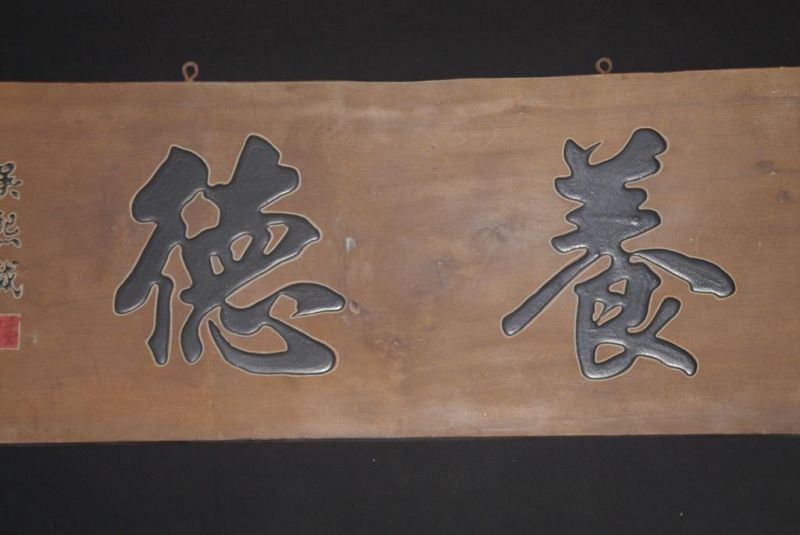 養德
吳熙載